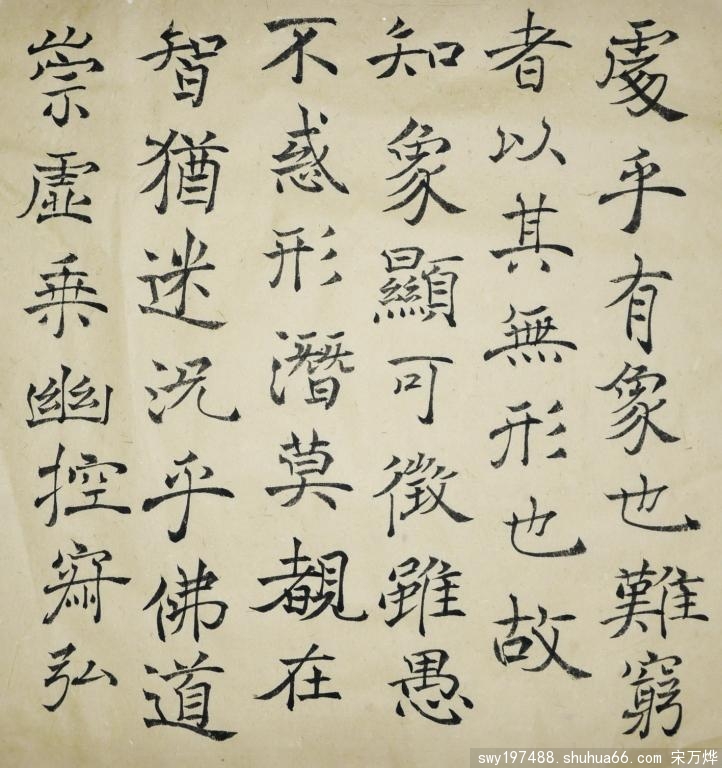 處乎有象也難窮
者以其無形也故
知象顯可徵雖愚
不惑形潛莫覩在
智猶迷況乎佛道
崇虛乗幽控寂弘
swy197488.shuhua66.com 宋万烨